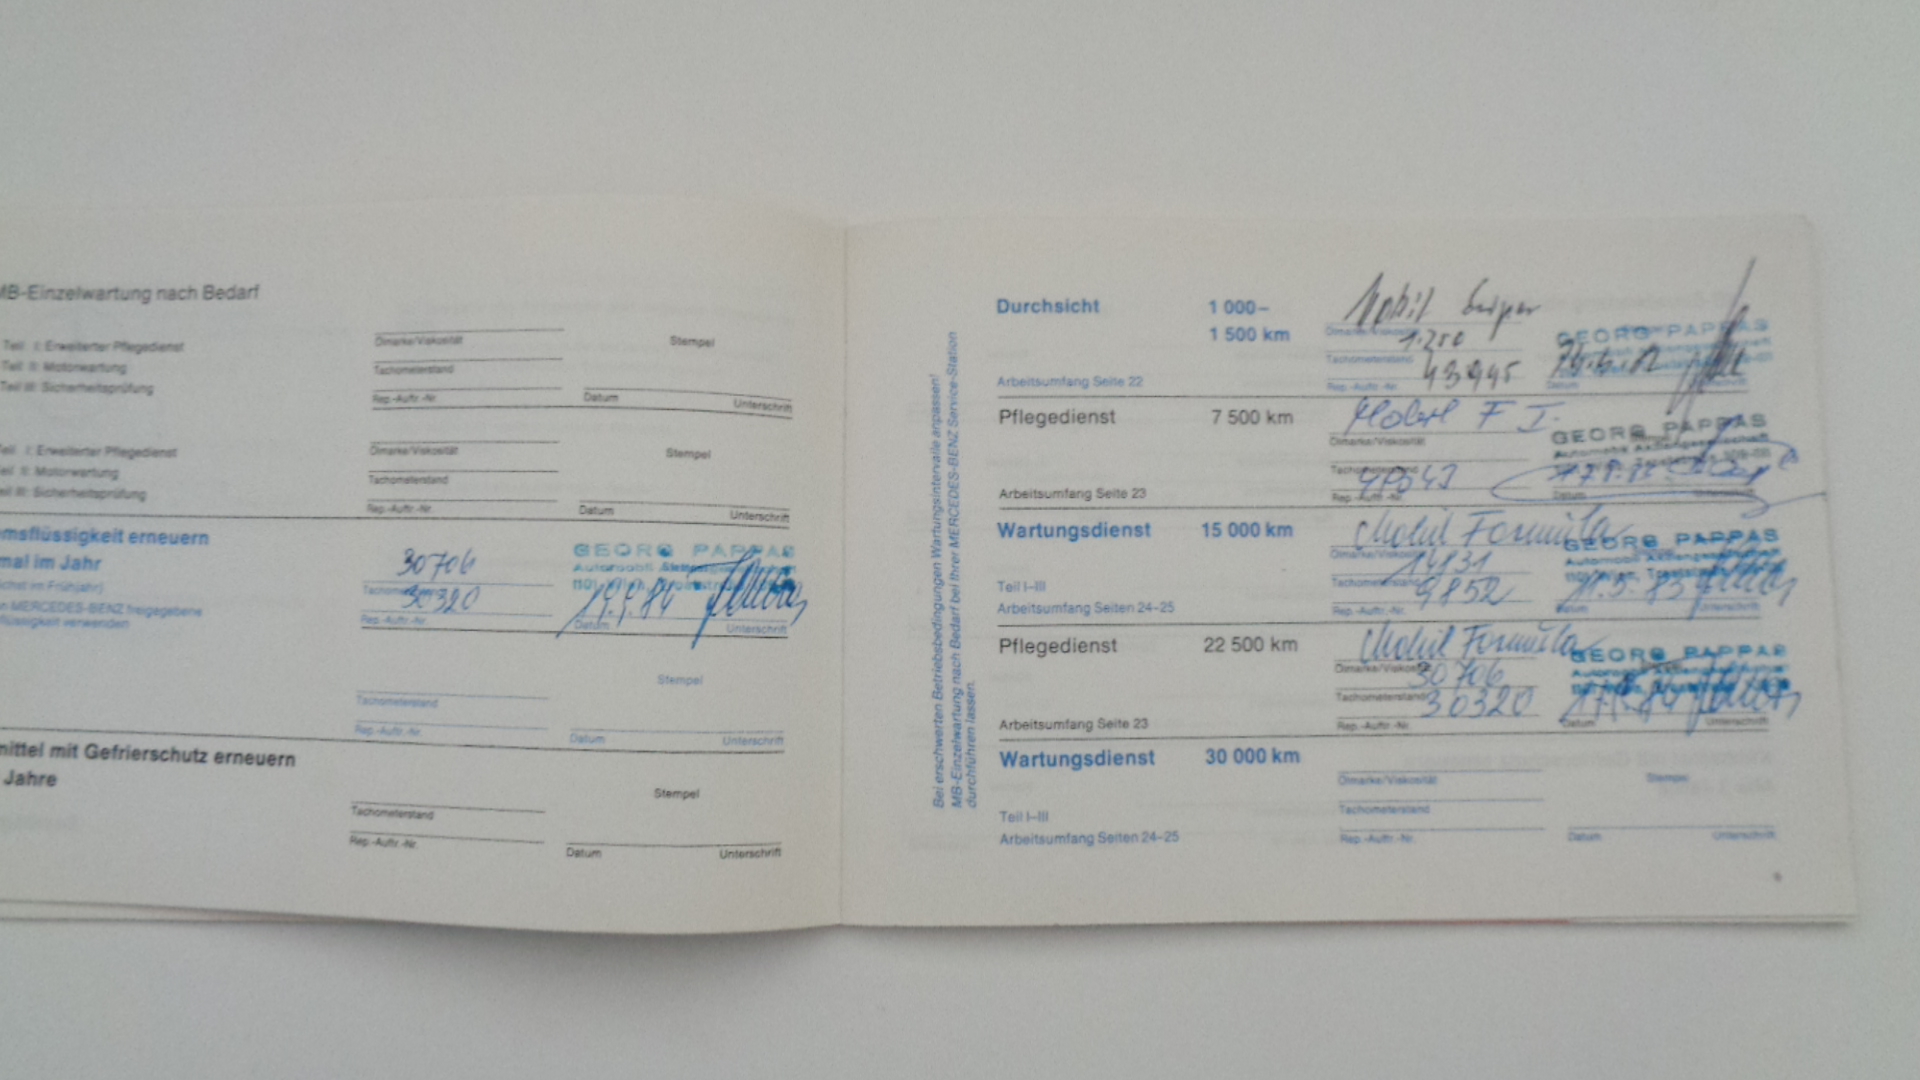 MB-Einzelwartung nach Bedarf
Teil I: Erweiterter Pflegedienst
Teil II: Motorwartung
Teil III: Sicherheitsprüfung
Ölmarke/Viskosität
Tachometerstand
Rep.-Auftr.-Nr.
Stempel
Datum
Unterschrift
Teil I: Erweiterter Pflegedienst
Teil II: Motorwartung
Teil III: Sicherheitsprüfung
Ölmarke/Viskosität
Tachometerstand
Rep.-Auftr.-Nr.
Stempel
Datum
Unterschrift
emsflüssigkeit erneuern
mal im Jahr
chst im Frühjahr)
n MERCEDES-BENZ freigegebene
flüssigkeit verwenden
30706
Tachometerstand
30320
Rep.-Auftr.-Nr.
GEORG PAPPAS
Datum
Unterschrift
Tachometerstand
Rep.-Auftr.-Nr.
Stempel
Datum
Unterschrift
mittel mit Gefrierschutz erneuern
Jahre
Tachometerstand
Rep.-Auftr.-Nr.
Stempel
Datum
Unterschrift
Bei erschwerten Betriebsbedingungen Wartungsintervalle anpassen!
MB-Einzelwartung nach Bedarf bei Ihrer MERCEDES-BENZ Service-Station
durchführen lassen.
Durchsicht 1 000–
1 500 km
Arbeitsumfang Seite 22
Mobil Super
1.250
Tachometerstand
43945
Rep.-Auftr.-Nr.
GEORG PAPPAS
Datum
Pflegedienst 7 500 km
Arbeitsumfang Seite 23
Mobil F I.
Ölmarke/Viskosität
Tachometerstand
Rep.-Auftr.-Nr.
GEORG PAPPAS
Automobil Aktiengesellschaft
Datum
Unterschrift
Wartungsdienst 15 000 km
Teil I–III
Arbeitsumfang Seiten 24–25
Mobil Formula
Ölmarke/Viskosität
14831
Tachometerstand
9852
Rep.-Auftr.-Nr.
GEORG PAPPAS
Automobil Aktiengesellschaft
Datum
Unterschrift
Pflegedienst 22 500 km
Arbeitsumfang Seite 23
Mobil Formula
Ölmarke/Viskosität
30706
Tachometerstand
30320
Rep.-Auftr.-Nr.
GEORG PAPPAS
Datum
Unterschrift
Wartungsdienst 30 000 km
Teil I–III
Arbeitsumfang Seiten 24–25
Ölmarke/Viskosität
Tachometerstand
Rep.-Auftr.-Nr.
Stempel
Datum
Unterschrift